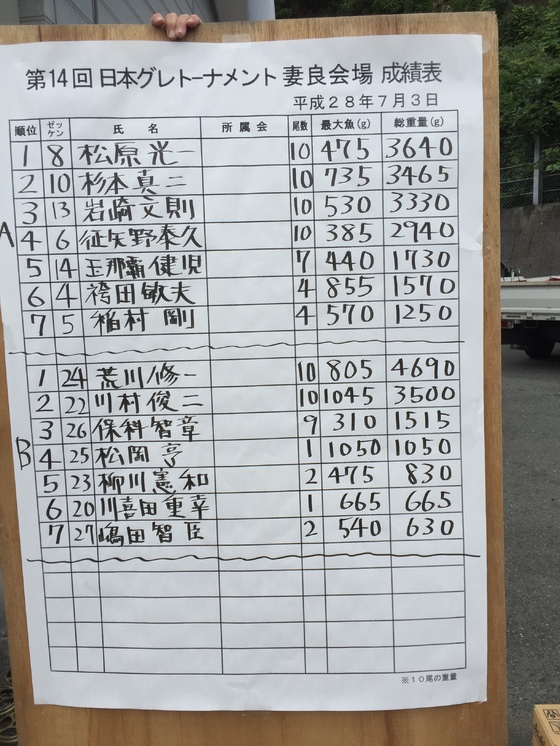 第14回 日本グレトーナメント 妻良会場 成績表
平成28年7月3日
順位 ゼッケン 氏名 所属会 尾数 最大魚(g) 総重量(g)
A
1 8 松原光一 10 475 3640
2 10 杉本真二 10 735 3465
3 13 岩崎文則 10 530 3330
4 6 征矢野泰久 10 385 2940
5 14 玉那覇健児 7 440 1730
6 4 袴田敏夫 4 855 1570
7 5 稲村剛 4 570 1250
B
1 24 荒川修一 10 805 4690
2 22 川村俊二 10 1045 3500
3 26 保科智章 9 310 1515
4 25 松岡亨 1 1050 1050
5 23 柳川憲和 2 475 830
6 20 川喜田重幸 1 665 665
7 27 嶋田智臣 2 540 630
※10尾の重量